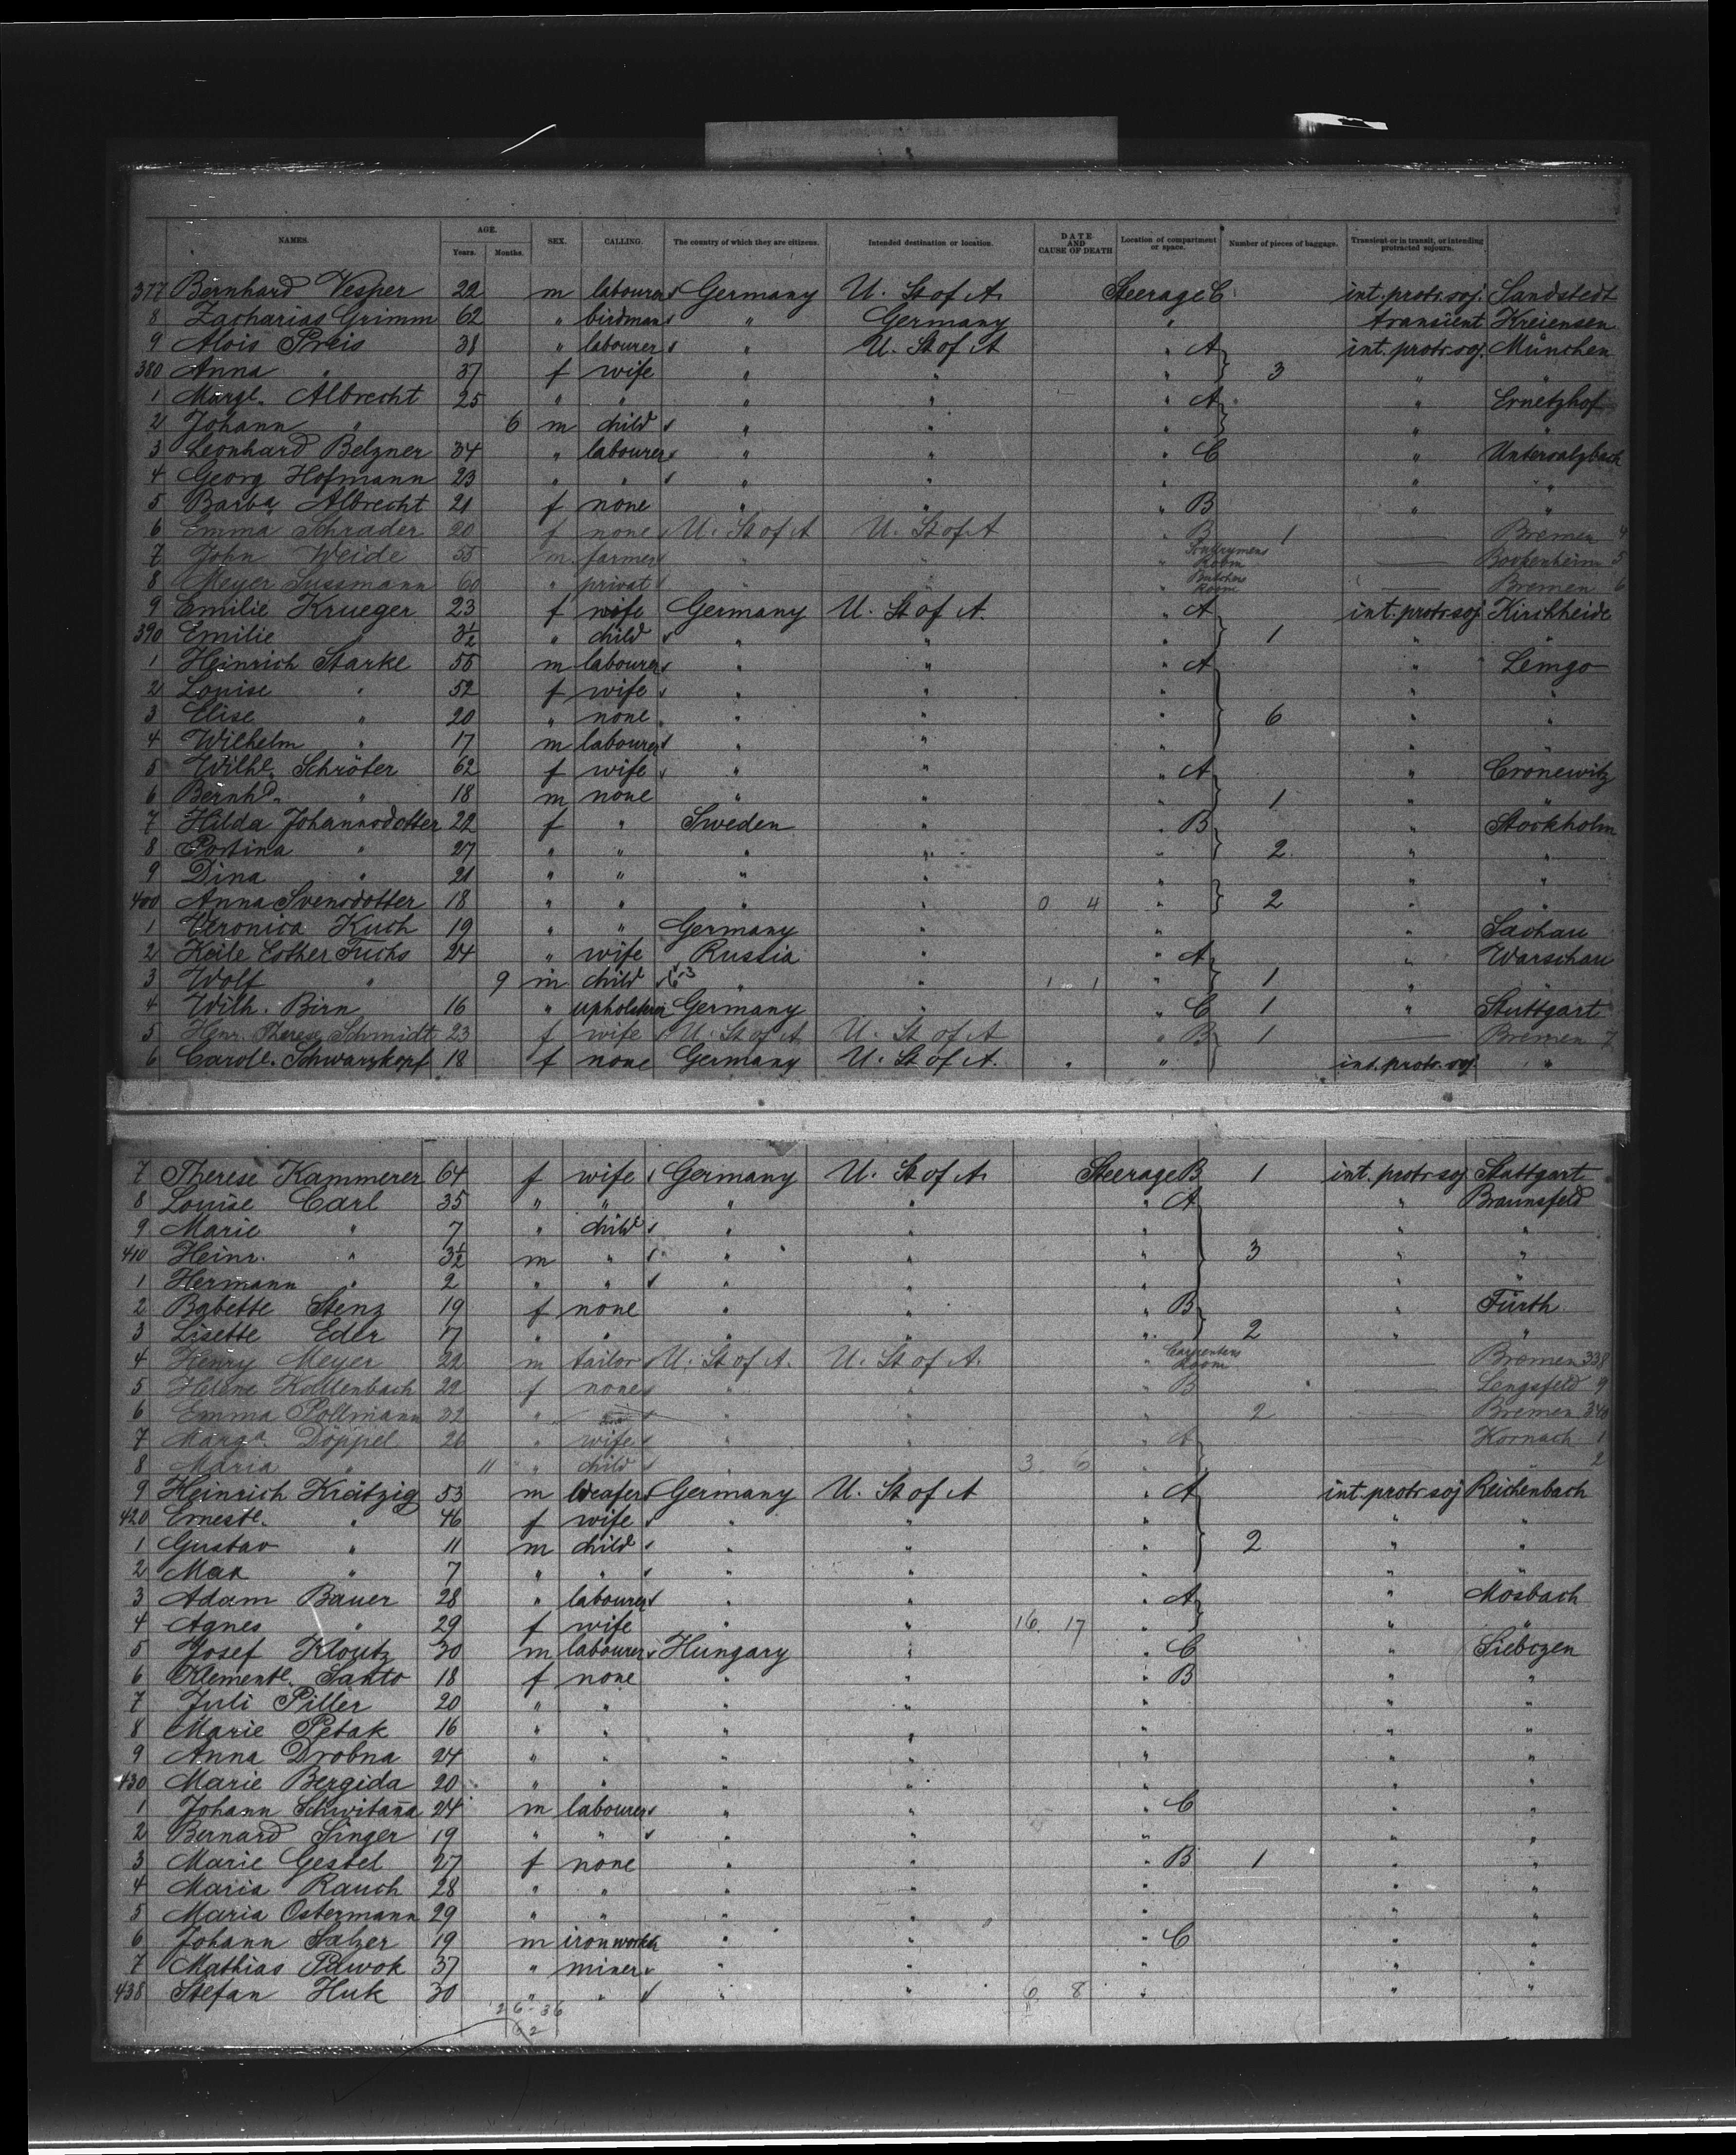 NAMES. AGE. Years. Months. SEX. CALLING. The country of which they are citizens. Intended destination or location. DATE AND CAUSE OF DEATH Location of compartment or space. Number of pieces of baggage. Transient or in transit, or intending protracted sojourn.
377 Bernhard Vesper 22 m labourer Germany U. St of A. Steerage C int. protr. soj. Sandstedt
8 Zacharias Grimm 62 " birdman " Germany " transient Kreiensen
9 Alois Preis 38 " labourer " U. St of A " A int. protr. soj. München
380 Anna " 37 f wife " " " 3 " "
1 Margt. Albrecht 25 " " " " " A " Ernetzhof
2 Johann " 6 m child " " " " "
3 Leonhard Belzner 34 " labourer " " " C " Untersalzbach
4 Georg Hofmann 23 " " " " " " "
5 Barba Albrecht 21 f none " " " B " "
6 Emma Schrader 20 f none U. St of A U. St of A " B 1 — Bremen 4
7 John Weide 55 m farmer " " " Room — Bockenheim 5
8 Meyer Sussmann 60 " privat " " " Butchers Room — Bremen 6
9 Emilie Krueger 23 f wife Germany U. St of A. " A int. protr. soj Kirchheide
390 Emilie " 3½ " child " " " 1 " "
1 Heinrich Starke 55 m labourer " " " A " Lemgo
2 Louise " 52 f wife " " " " "
3 Elise " 20 " none " " " 6 " "
4 Wilhelm " 17 m labourer " " " " "
5 Wilhe. Schröter 62 f wife " " " A " Cronewitz
6 Bernhd. " 18 m none " " " 1 " "
7 Hilda Johannsdotter 22 f " Sweden " " B " Stockholm
8 " 27 " " " " " 2 " "
9 Dina " 21 " " " " " " "
400 Anna Svensdotter 18 " " " " 0 4 " 2 " "
1 Veronica Kuch 19 " " Germany " " " Sachau
2 Keile Esther Fuchs 24 " wife Russia " " A " Warschau
3 Wolf " 9 m child " " 1 1 " 1 " "
4 Wilh. Birn 16 " upholsterer Germany " " C 1 " Stuttgart
5 Henr. Therese Schmidt 23 f wife U. St of A U. St of A " B 1 — Bremen 7
6 Carole. Schwarzkopf 18 f none Germany U. St of A. " int. protr. soj. "
7 Therese Kammerer 64 f wife Germany U. St of A Steerage B 1 int. protr. soj Stuttgart
8 Louise Carl 35 " " " " " A " Braunsfeld
9 Marie " 7 " child " " " " "
410 Heinr. " 3½ m " " " " 3 " "
1 Hermann " 2 " " " " " " "
2 Babette Stenz 19 f none " " " B " Fürth
3 Lisette Eder 17 " " " " " 2 " "
4 Henry Meyer 22 m tailor U. St of A. U. St of A. " Carpenters Room — Bremen 338
5 Helene Kollenbach 22 f none " " " B — Lengsfeld 9
6 Emma Pollmann 22 " " " " 2 — Bremen 340
7 Marga. Döppel 26 " wife " " " A — Kornach 1
8 Maria " 11 " child " " 3 6 " 2
9 Heinrich Krätzig 53 m Germany U. St of A " A int. protr. soj Reichenbach
420 Erneste. " 46 f wife " " " " "
1 Gustav " 11 m child " " " 2 " "
2 Max " 7 " " " " " " "
3 Adam Bauer 28 " labourer " " " A " Mosbach
4 Agnes " 29 f wife " " 16 17 " " "
5 Josef Kloutz 30 m labourer Hungary " " C " Siebozen
6 Klemente. Santo 18 f none " " " B " "
7 Juli Piller 20 " " " " " " "
8 Marie Petak 16 " " " " " " "
9 Anna Drobna 24 " " " " " " "
430 Marie Bergida 20 " " " " " " "
1 Johann Schwitana 24 m labourer " " " C " "
2 Bernard Singer 19 " " " " " " "
3 Marie Gestel 27 f none " " " B 1 " "
4 Maria Rauch 28 " " " " " " "
5 Maria Ostermann 29 " " " " " " "
6 Johann Salzer 19 m ironworker " " " C " "
7 Mathias Pawok 37 " miner " " " " "
438 Stefan Huk 30 " " " " 6 8 " " "
26-36
62